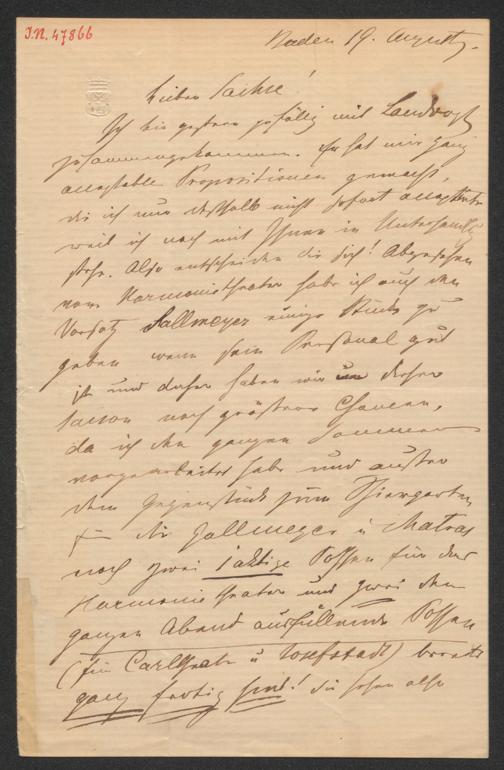 I.N. 47866
Baden 19. August.
Lieber Sachse!
Ich bin gestern zufällig mit Landvogt
zusammengekommen. Er hat mir ganz
acceptable Propositionen gemacht,
die ich nur deshalb nicht sofort acceptirte
weil ich noch mit Ihnen in Unterhandlg
stehe. Also entscheiden Sie sich! Abgesehen
vom Harmonietheater habe ich auch den
Vorsatz Gallmeyer einige Stücke zu
geben wenn sein Personal gut
ist und daher haben wir in dieser
Saison noch größere Chancen,
da ich den ganzen Sommer
vorgearbeitet habe und außer
dem Gegenstück zum Thiergarten
für die Gallmeyer u Matras
noch zwei 1aktige Possen für das
Harmonietheater und zwei den
ganzen Abend ausfüllende Possen
(für Carltheater u Josefstadt) bereits
ganz fertig sind! Sie sehen also